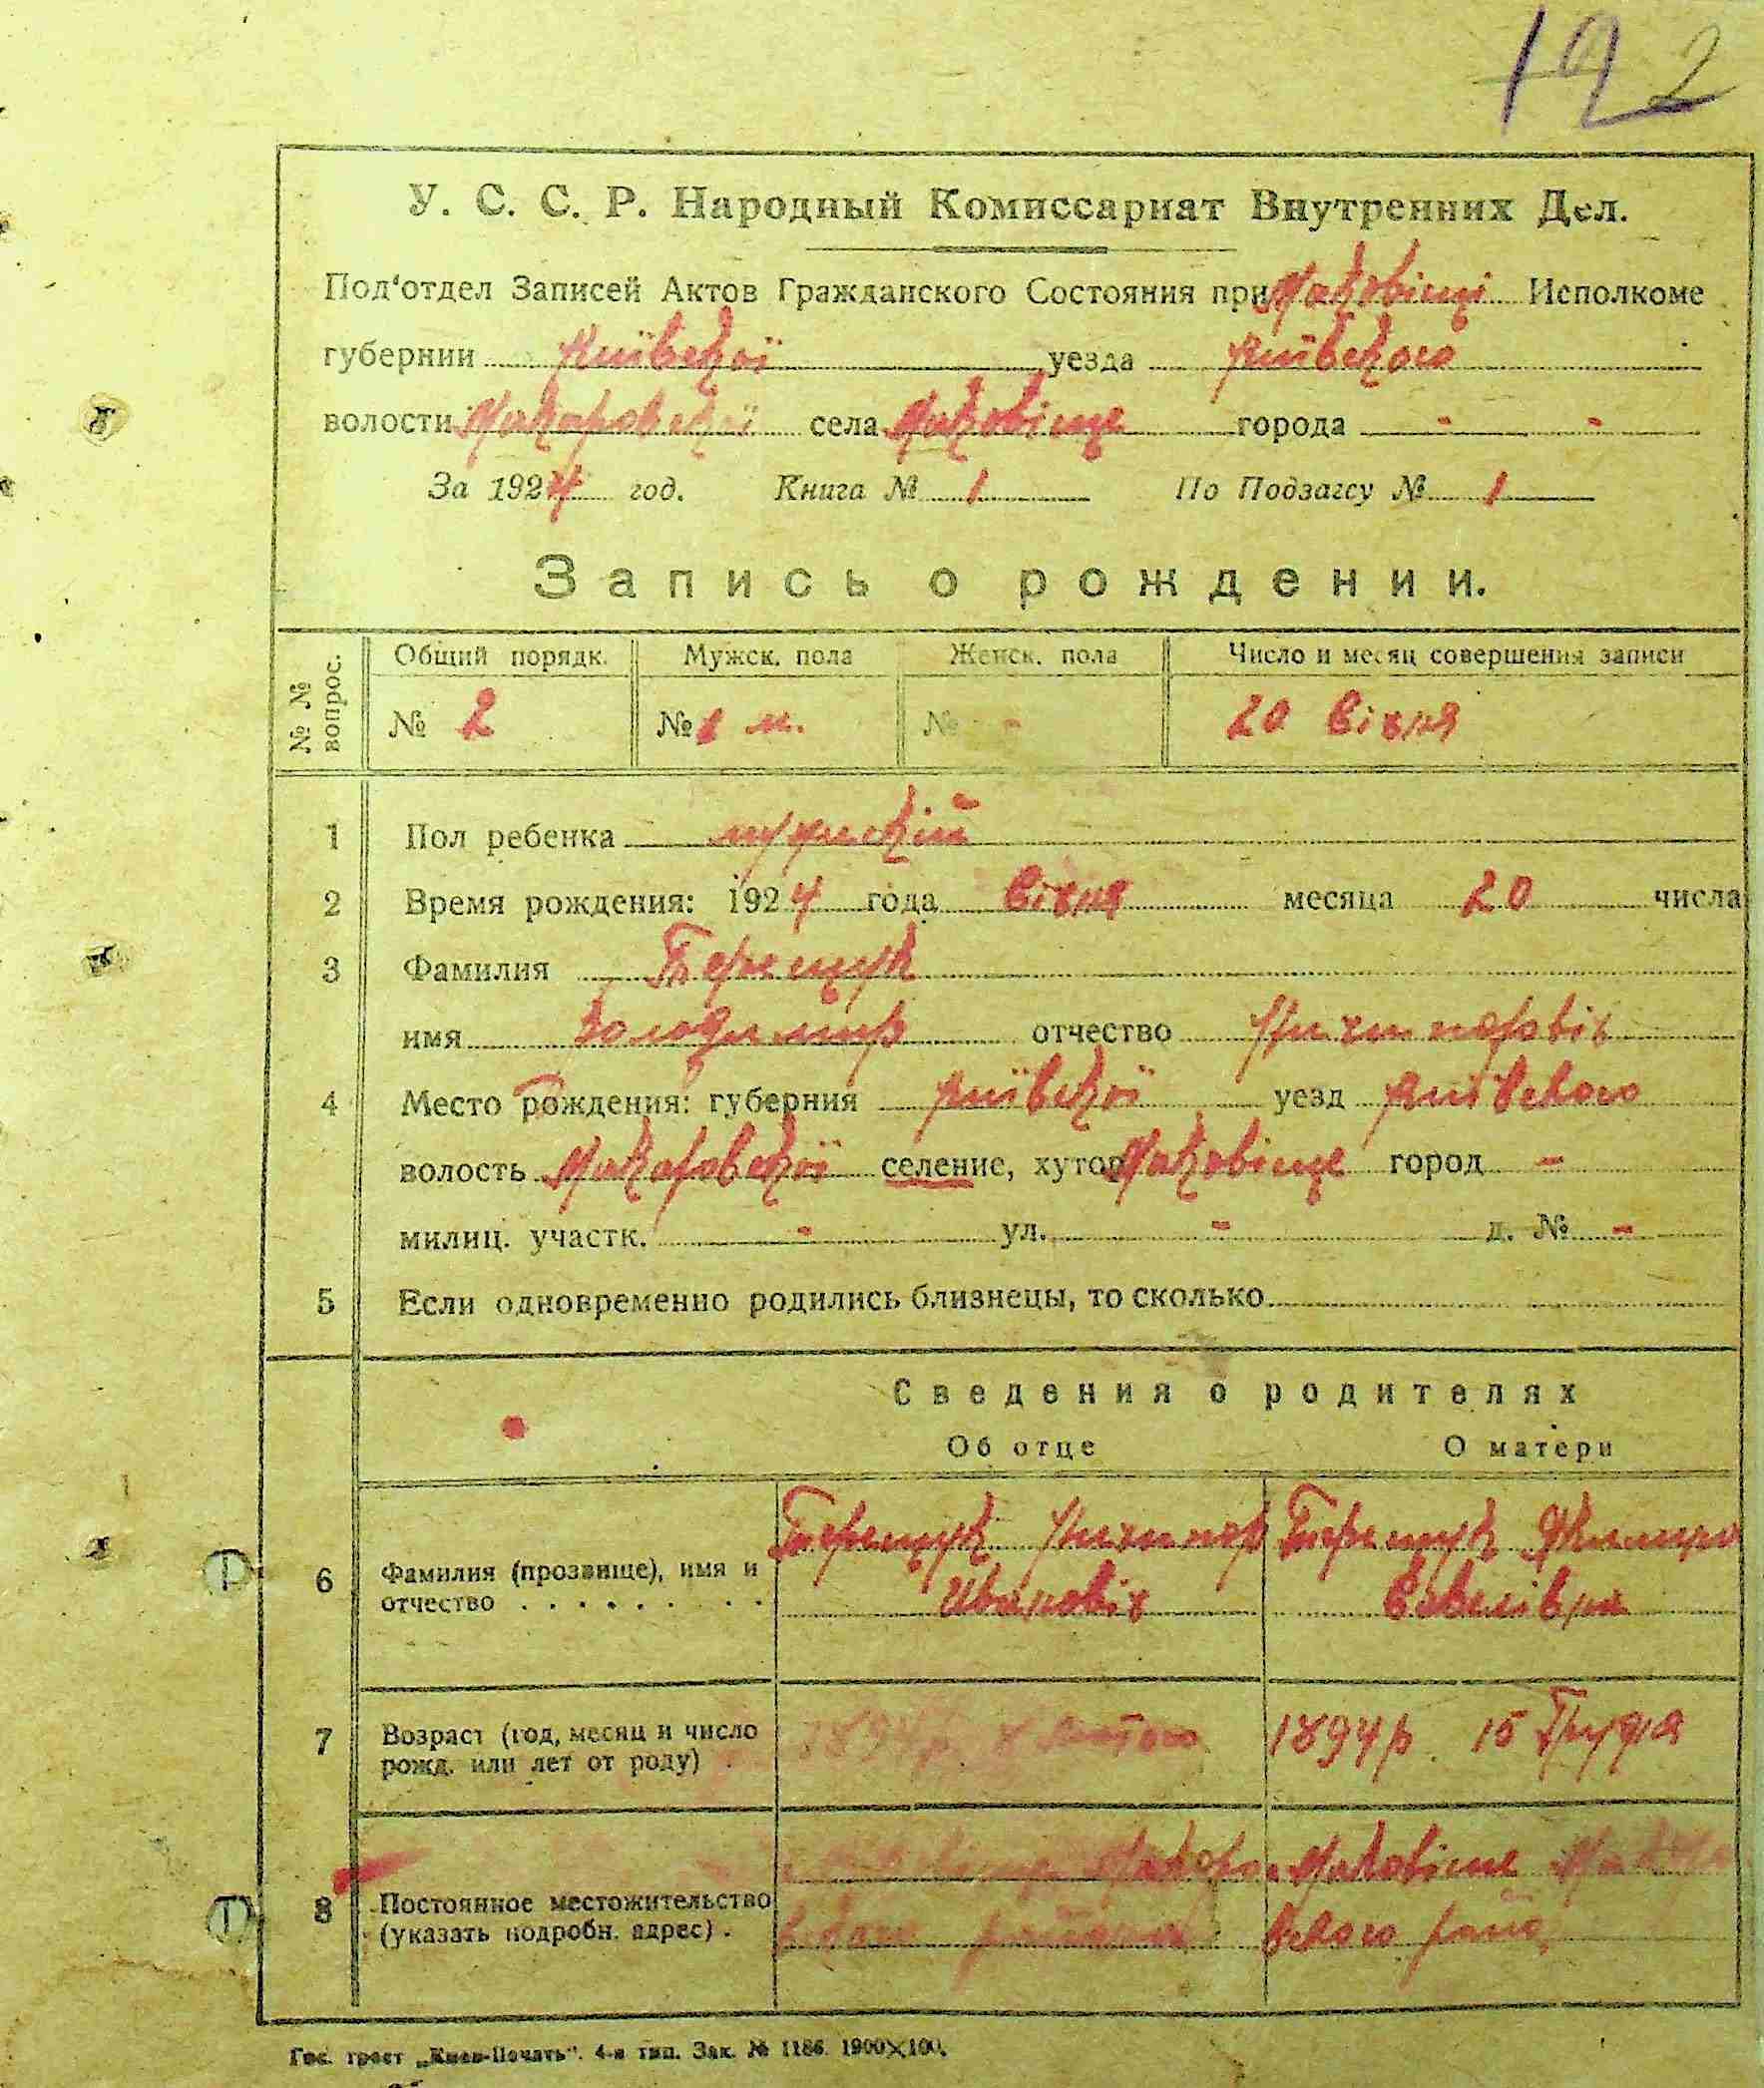 192
У. С. С. Р. Народный Комиссариат Внутренних Дел.
Под'отдел Записей Актов Гражданского Состояния при Маковіщі Исполкоме
губернии Київської уезда Київського
волости Макаровської села Маковіще города - -
За 1924 год. Книга № 1 По Подзагсу № 1
Запись о рождении.
№ № вопрос. Общий порядк. Мужск. пола Женск. пола Число и месяц совершения записи
№ 2 № 1 м. № - 20 Січня
1 Пол ребенка мужський
2 Время рождения: 1924 года Січня месяца 20 числа
3 Фамилия Терещук
имя Володимир отчество
4 Место рождения: губерния Київської уезд Київського
волость Макаровської селение, хутор Маковіще город -
милиц. участк. - ул. - д. № -
5 Если одновременно родились близнецы, то сколько
Сведения о родителях
Об отце О матери
Терещук Терещук
6 Фамилия (прозвище), имя и отчество Іванович Савелівна
7 Возраст (год, месяц и число рожд. или лет от роду) 1894 р. 15 Грудня
Маковіще
8 Постоянное местожительство (указать подробн. адрес) района вського райо,
Гос. трест „Киев-Печать". 4-я тип. Зак. № 1186. 1900×100.